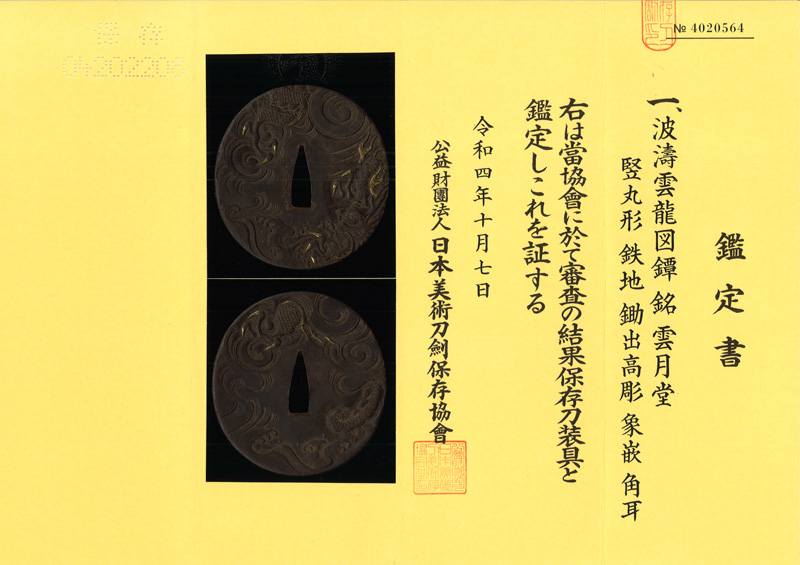 № 4020564
鑑定書
一、波濤雲龍図鐔 銘 雲月堂
竪丸形 鉄地 鋤出高彫 象嵌 角耳
右は當協會に於て審査の結果保存刀装具と
鑑定しこれを証する
令和四年十月七日
公益財團法人 日本美術刀劍保存協會